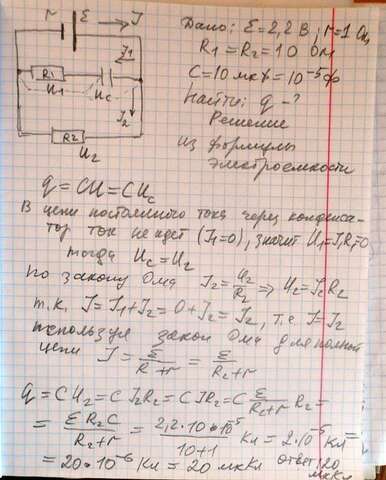 r ε J
J₁
R1
U₁ Uc
J₂
R2
U₂
Дано: ε=2,2 В; r=1 Ом
R₁=R₂=10 Ом
C=10 мкФ=10⁻⁵Ф
Найти: q-?
Решение
из формулы
электроемкости
q=CU=CUc
В цепи постоянного тока через конденса-
тор ток не идет (J₁=0), значит U₁=J₁R₁=0
тогда Uc=U₂
По закону Ома J₂=U₂/R₂ ⇒ U₂=J₂R₂
т.к. J=J₁+J₂=0+J₂=J₂, т.е. J=J₂
используя закон Ома для полной
цепи J=ε/(R+r)=ε/(R₂+r)
q=CU₂=CJ₂R₂=CJR₂=C ε/(R₂+r) R₂=
=εR₂C/(R₂+r)=2,2·10·10⁻⁵/(10+1) Кл=2·10⁻⁵Кл=
=20·10⁻⁶ Кл=20 мкКл ответ: 20
мкКл